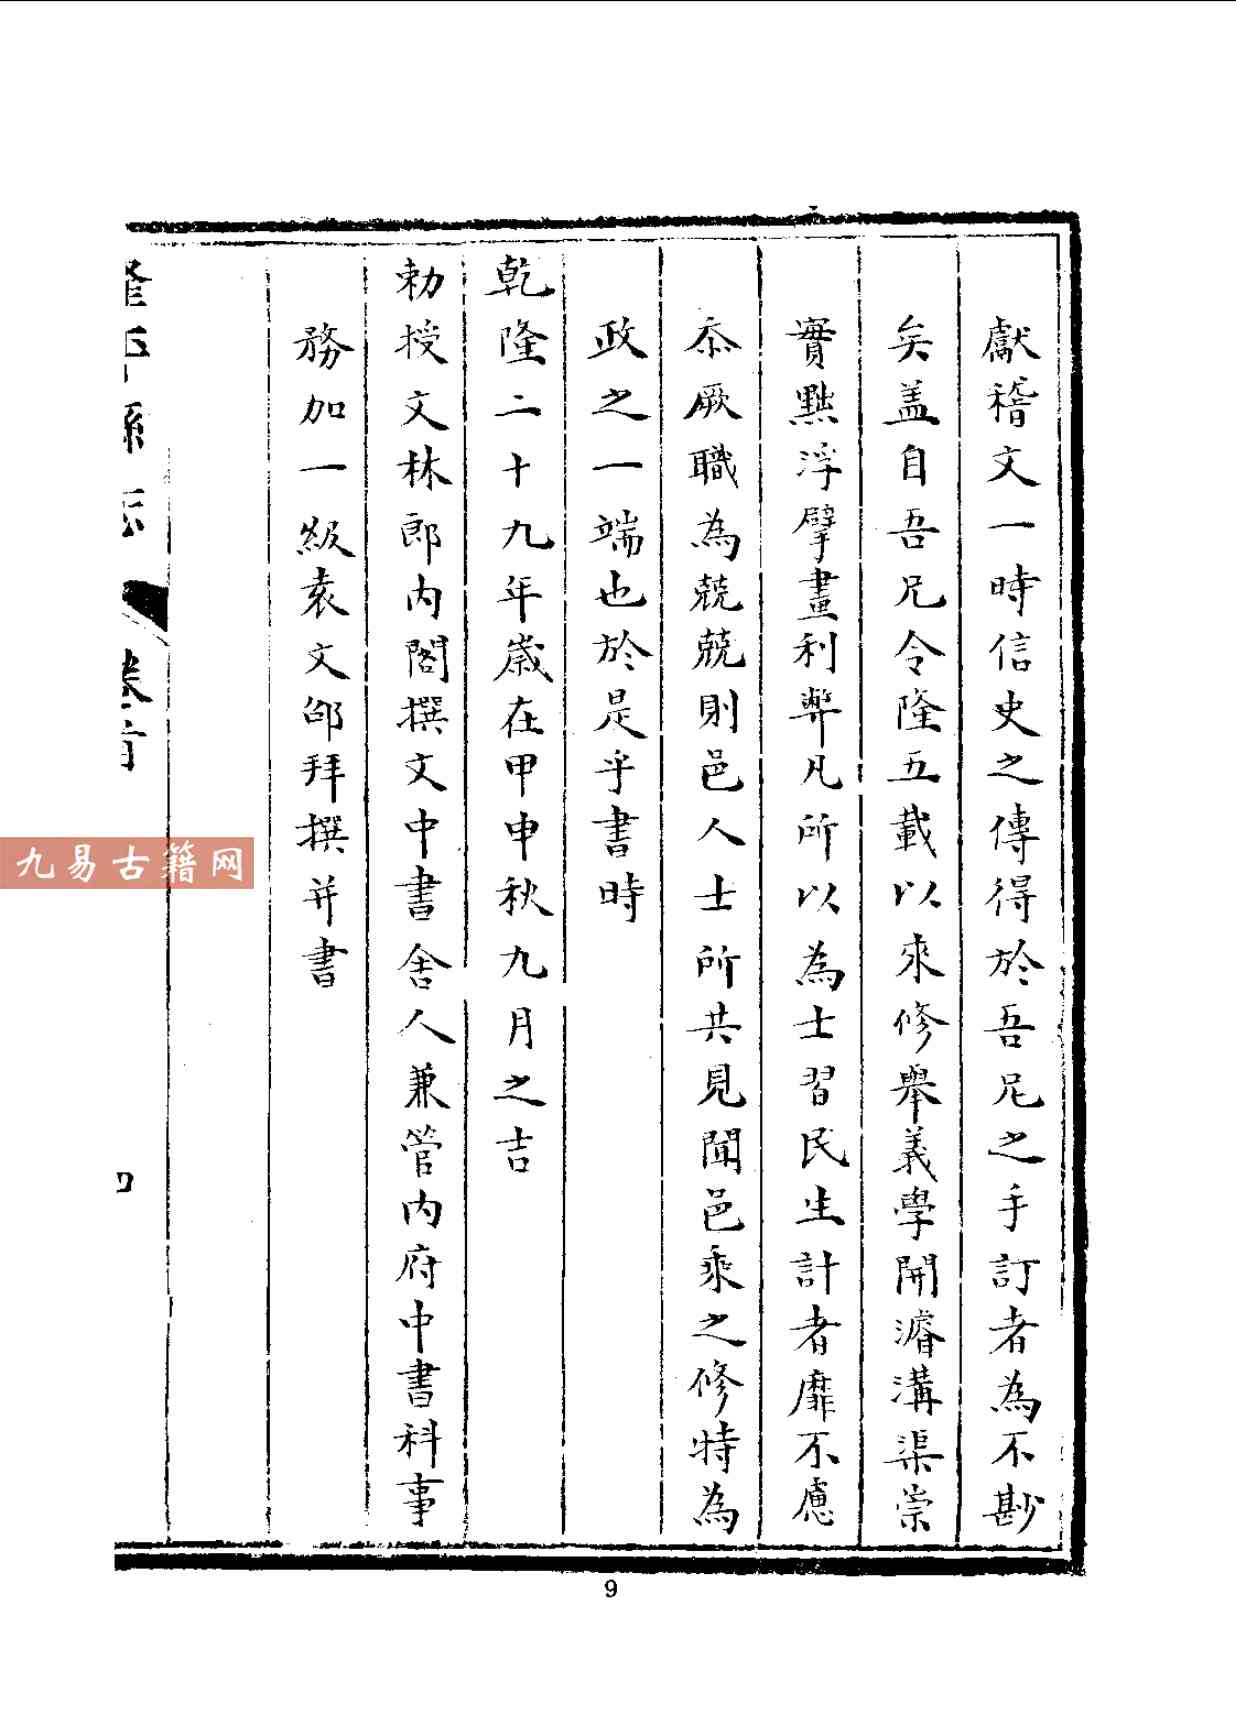 獻稽文一時信史之傳得於吾兄之手訂者為不尠
矣盖自吾兄令隆五載以來修舉義學開濬溝渠崇
實黜浮擘畫利弊凡所以為士習民生計者靡不慮
忝厥職為兢兢則邑人士所共見聞邑乘之修特為
政之一端也於是乎書時
乾隆二十九年歲在甲申秋九月之吉
勅授文林郎內閣撰文中書舍人兼管內府中書科事
務加一級袁文邵拜撰并書
隆平縣志
卷首
四
九易古籍网
9